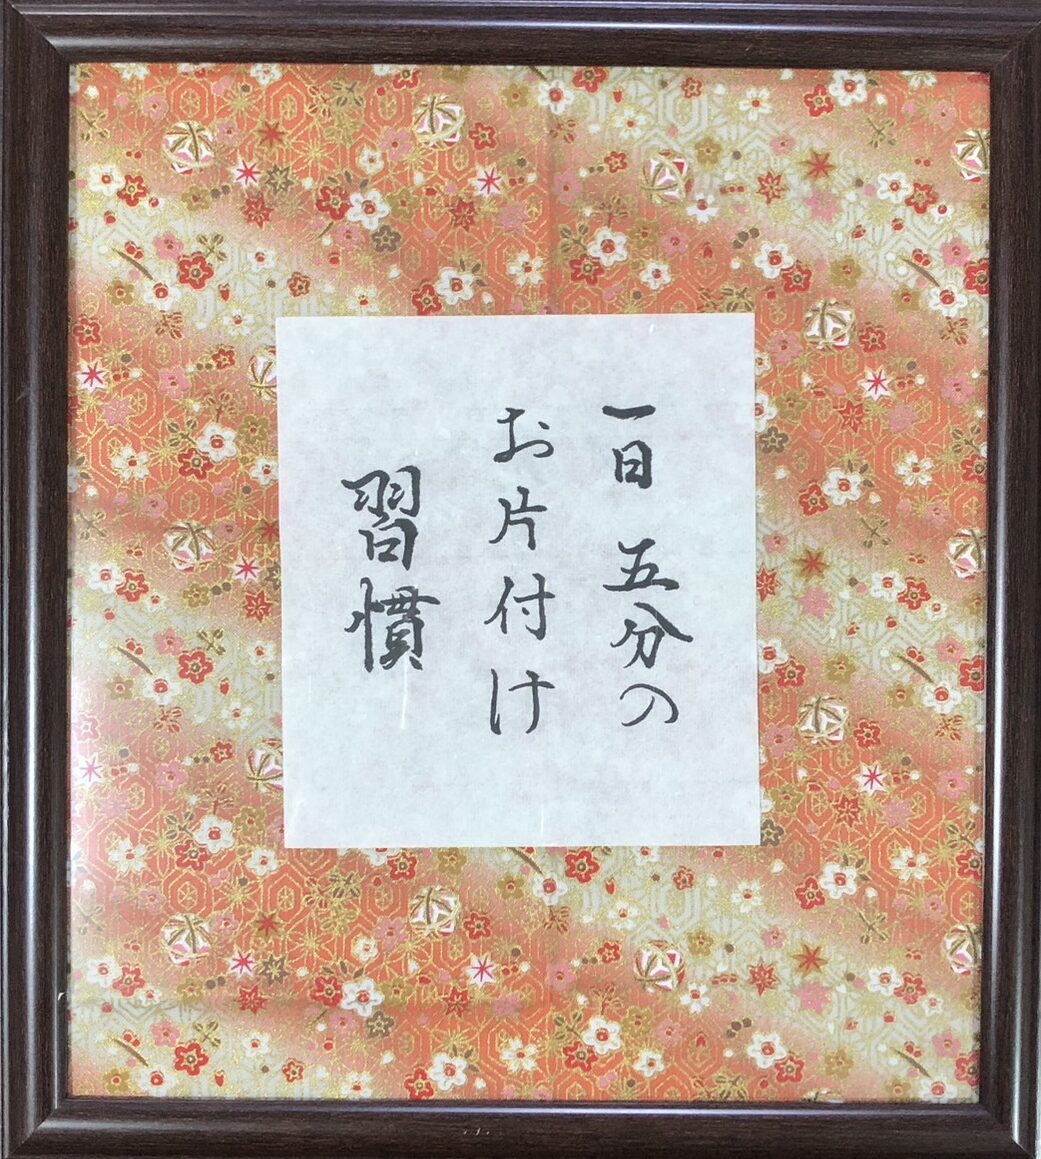 一日 五分の
お片付け
習慣